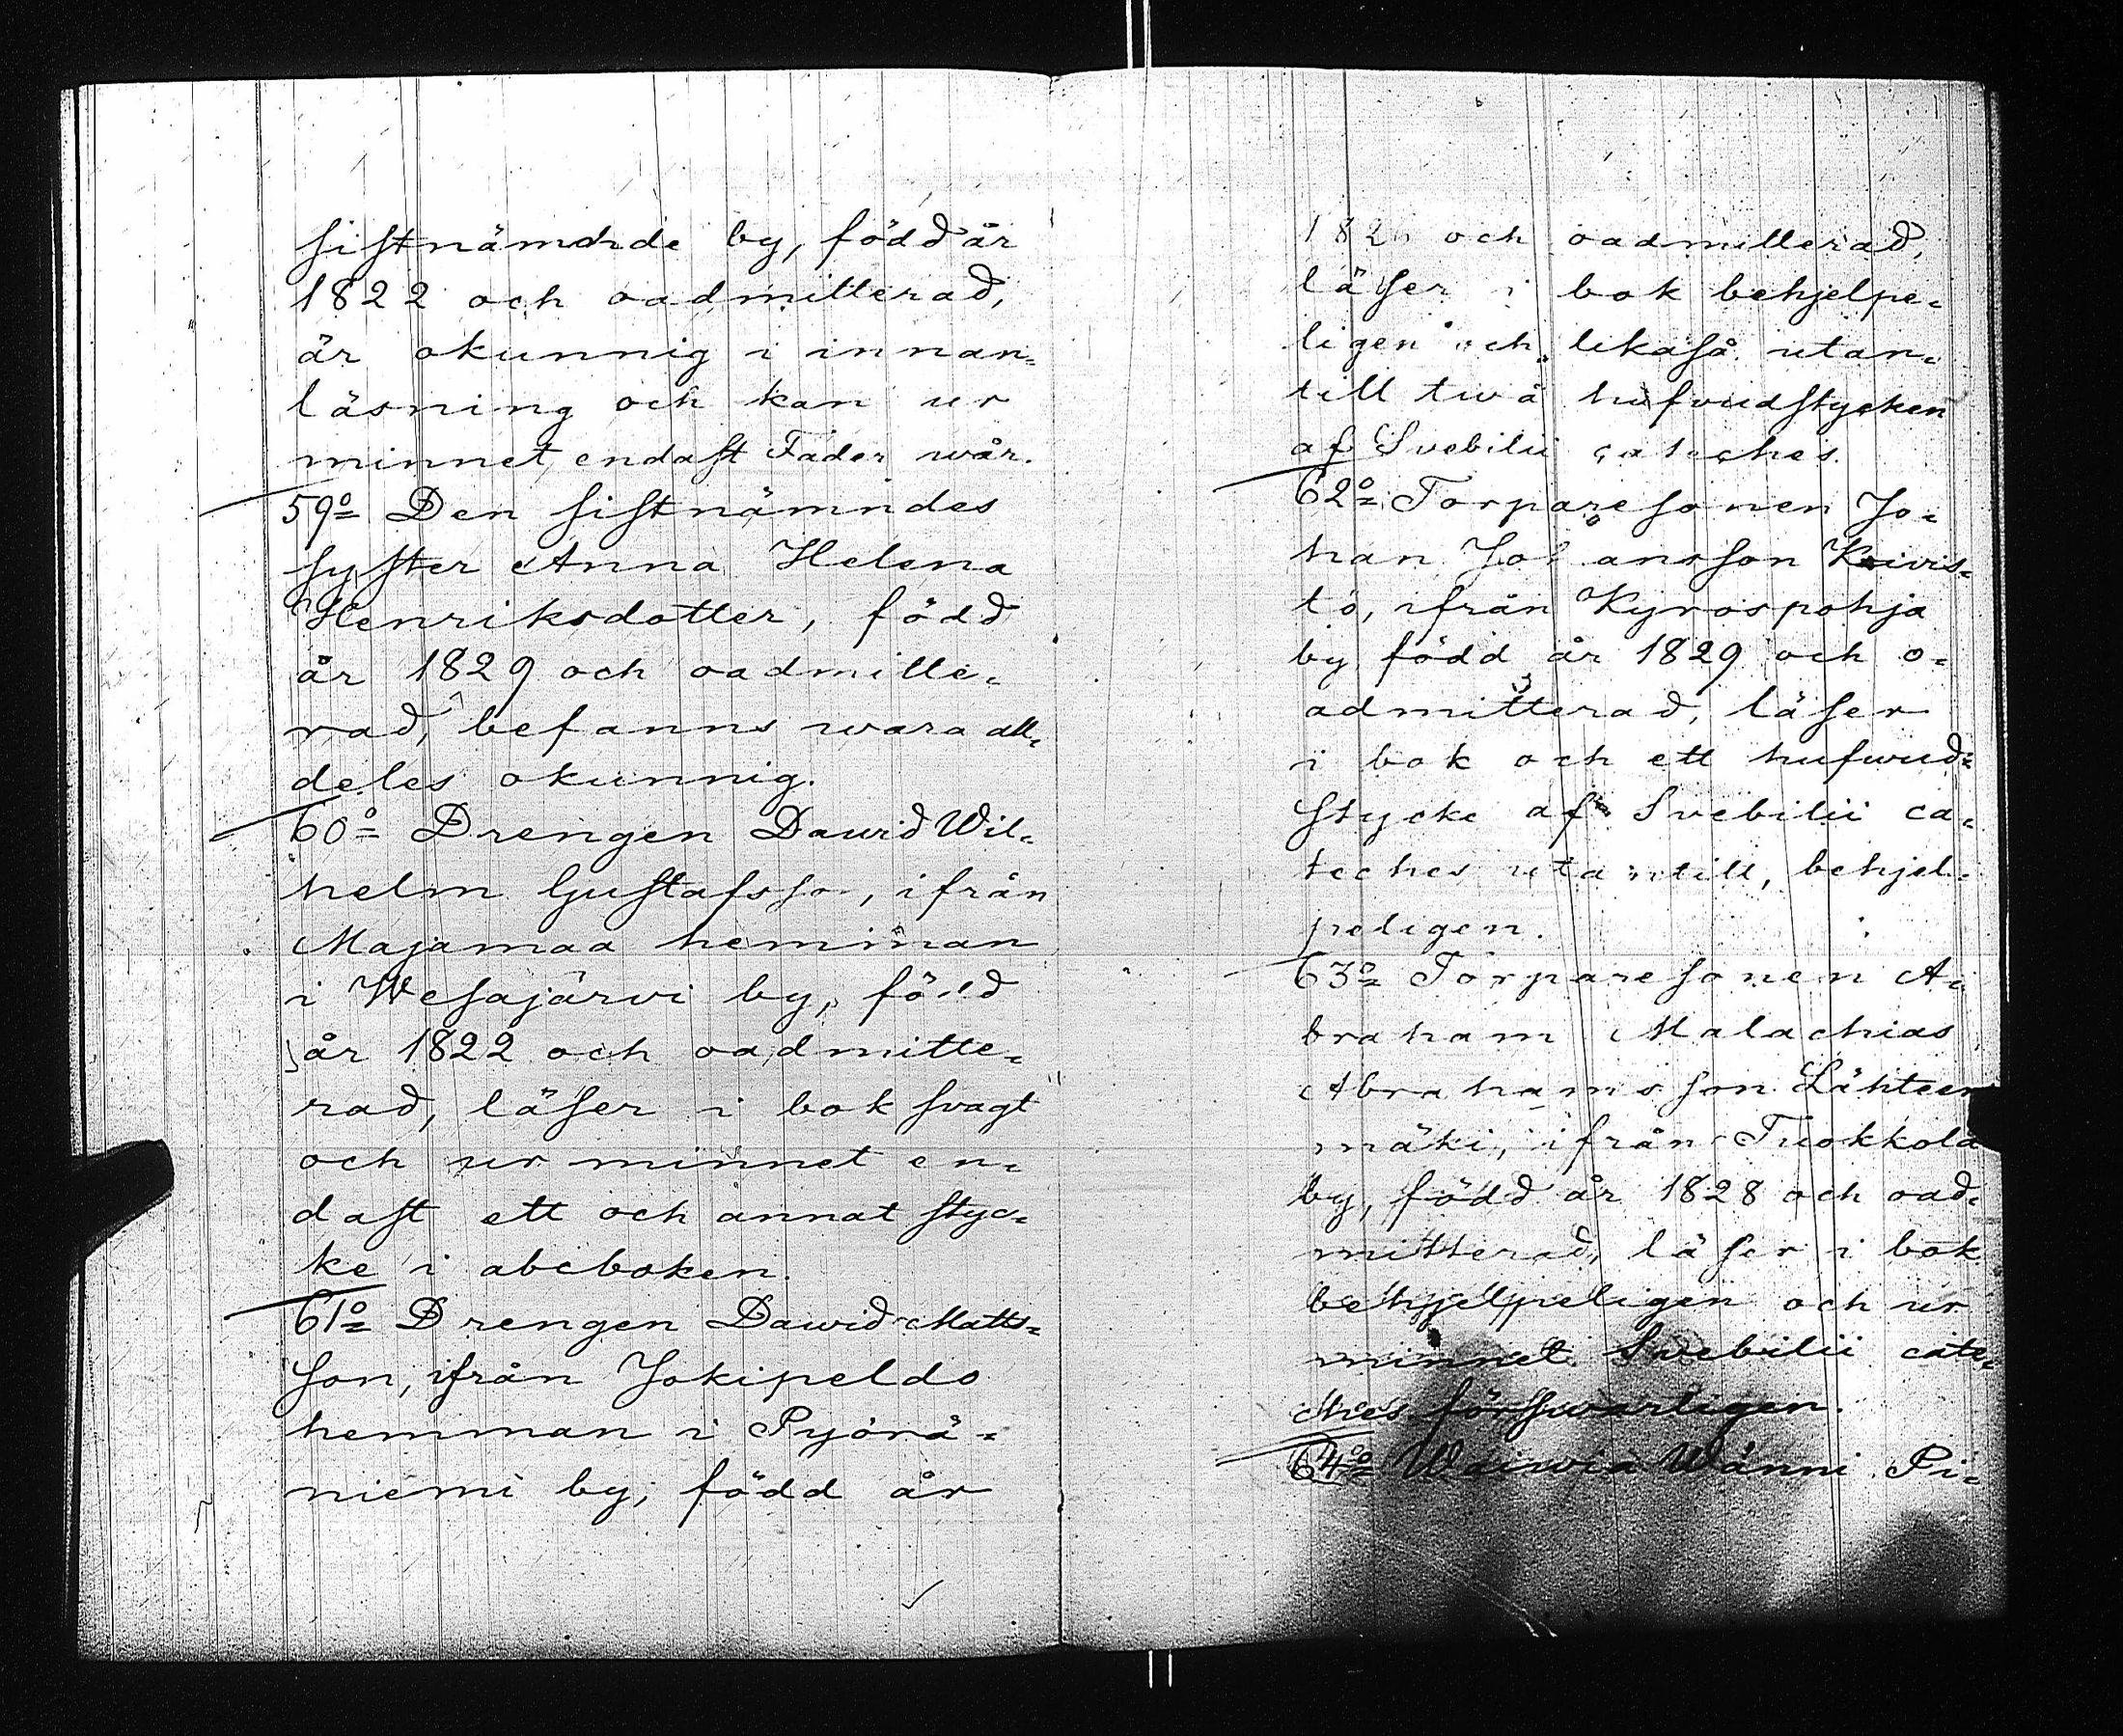 sistnämnde by, född år
1822 och oadmitterad,
är okunnig i innan=
läsning och kan ur
minnet endast Fader wår.
59o Den sistnämndes
syster Anna Helena
Henriksdotter, född
år 1829 och oadmitte=
rad, befanns wara all=
deles okunnig.
60o Drengen Dawid Wil=
helm Gustafsson, ifrån
Majamaa hemman
i Wesajärwi by, född
år 1822 och oadmitte=
rad, läser i bok svagt
och ur minnet en=
dast ett och annat styc=
ke i abcboken.
61o Drengen Dawid Matts=
son, ifrån Jokipeldo
hemman i Pyörä=
niemi by, född år
1826 och oadmitterad,
läser i bok behjelpe=
ligen och likaså utan=
till twå hufvudstycken
af Svebilii cateches.
62o Torparesonen Jo=
han Johansson Koivis=
to, ifrån Kyrospohja
by, född år 1829 och o=
admitterad, läser
i bok och ett hufwud=
stycke af Svebilii ca=
teches utantill, behjel=
peligen.
63o Torparesonen A=
braham Malachias
Abrahamsson Lähteen
mäki, ifrån Tuokkola
by, född år 1828 och oad=
mitterad, läser i bok
behjelpeligen och ur
minnet Svebilii cate=
ches förswarligen.
64o Waiwia Wänni Pi=